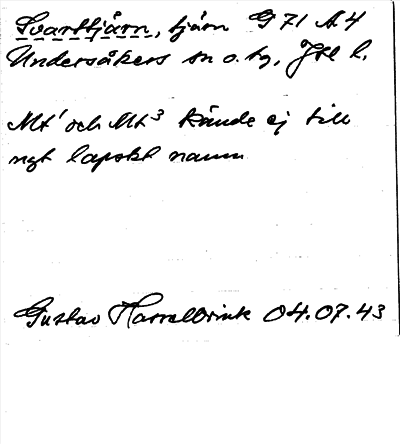 Svarttjärn, tjärn G 71 A 4
Undersåkers sn o. tg, Jtl l.
Mt¹ och Mt³ kände ej till
ngt lapskt namn
Gustav Hasselbrink 04.07.43